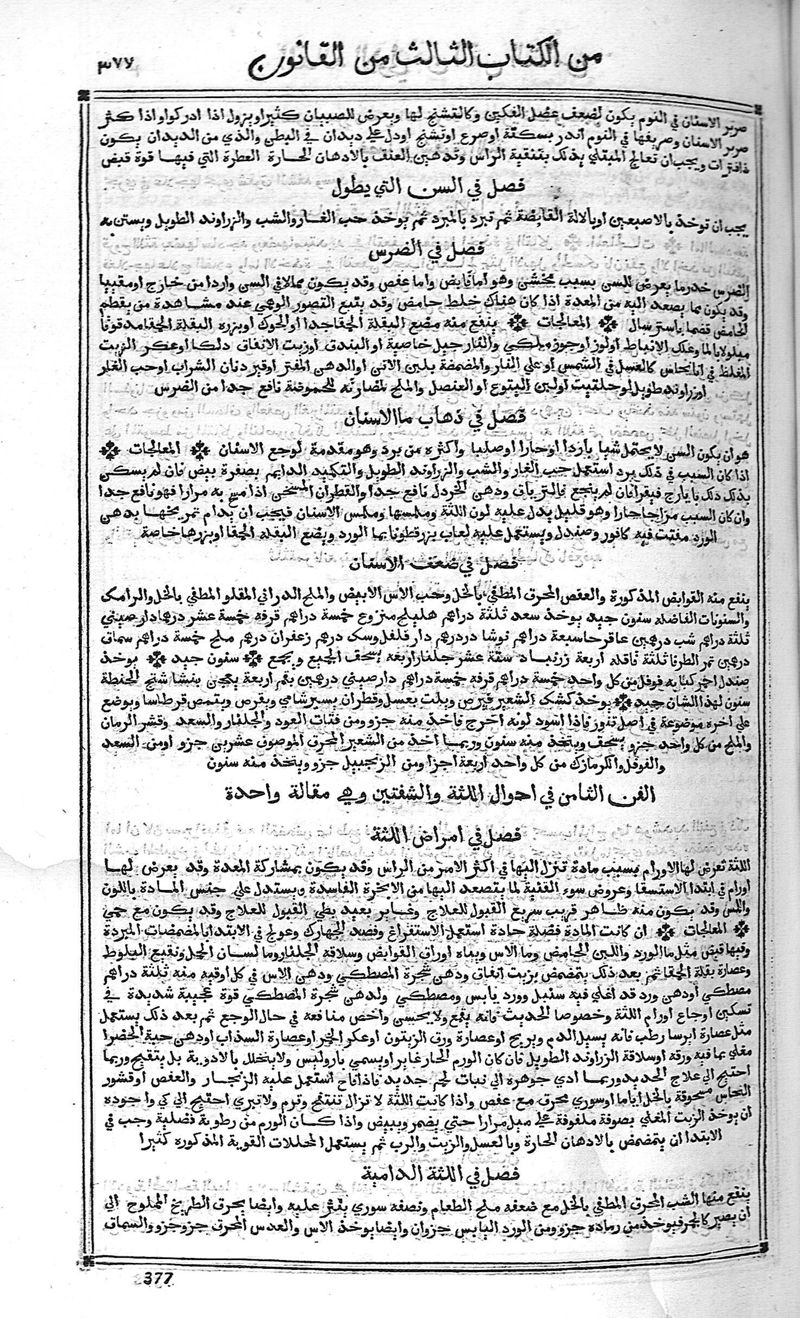 من الكتاب الثالث من القانون ٣٧٧
صرير الاسنان في النوم يكون لضعف عضل الفكين وكالتشنج لها ويعرض للصبيان كثيرا ويزول اذا ادركوا واذا كثر
صرير الاسنان وصريفها في النوم انذر بسكتة او صرع او تشنج او دل على ديدان في البطن والذي من الديدان يكون
ذا فترات ويجب ان تعالج المبتلي بذلك بتنقية الراس وتدهين العنف بالادهان الحارة العطرة التي فيها قوة قبض
فصل في السن التي يطول
يجب ان توخذ بالاصبعين او بالالة القابضة ثم تبرد بالمبرد ثم يوخذ حب الغار والشب والزراوند الطويل ويستن به
فصل في الضرس
الضرس خدر ما يعرض للسن بسبب مخشن وهو اما قابض واما عفص وقد يكون مما لاقى السن واردا من خارج او مقييا
وقد يكون مما يصعد اليه من المعدة اذا كان هناك خلط حامض وقد يتبع التصور الوهمي عند مشاهدة من يقضم
الحامض قضما باسترسال المعالجات ينفع منه مضغ البقلة الحمقا جدا او الحوك او بزره البقلة الحمقا مدقوقا
مبلولا بالما وعلك الانباط او لوز او جوز ملكي والنارجيل خاصية او البندق او زيت الانفاق دلكا او عكر الزيت
المغلظ في انا نحاس كالعسل في الشمس او على النار والمضمضة بلبن الاتن او الدهن المفتر او قير دنان الشراب او حب الغار
او زراوند طويل او حلتيت او لبن اليتوع او العنصل والملح لمضارته للحموضة نافع جدا من الضرس
فصل في ذهاب ما الاسنان
هو ان يكون السن لا يحتمل شيا باردا او حارا او صلبا واكثره من برد وهو مقدمة لوجع الاسنان المعالجات
اذا كان السبب في ذلك برد استعمل حب الغار والشب والزراوند الطويل والتكميد الدايم بصفرة بيض فان لم يسكن
بذلك دلك بايارج فيقرا فان لم ينجع فالترياق ودهن الخردل نافع جدا والقطران المسخن اذا مس به مرارا فهو نافع جدا
وان كان السبب مزاجا حارا وهو قليل يدل عليه لون اللثة وملمسها وملمس الاسنان فيجب ان يدام تمريخها بدهن
الورد مفتت فيه كافور وصندل ويستعمل عليه لعاب بزرقطونا بما الورد ويمضغ البقلة الحمقا او بزرها خاصة
فصل في ضعف الاسنان
ينفع منه القوابض المذكورة والعفص المحرق المطفي بالخل وحب الاس الابيض والملح الدراني المقلو المطفي بالخل والرامك
والسنونات الفاضله سنون جيد يوخذ سعد ثلثة دراهم هليلج منزوع خمسة دراهم قرفه خمسة عشر درهما دارصيني
ثلثة دراهم شب درهمين عاقرقرحا سبعة دراهم نوشادر درهم دار فلفل وسك درهم زعفران درهم ملح خمسة دراهم سماق
درهمين ثمر الطرفا ثلثة ثاقله اربعة زرنباد ستة عشر جلنار اربعه يسحق الجميع ويجمع سنون جيد يوخذ
صندل احمر كبابه فوفل من كل واحد خمسة دراهم قرفه خمسة دراهم دارصيني درهمين بقم اربعة يعجن بنشاشتج الحنطة
سنون لهذا الشان جيد يوخذ كشك الشعير فيرض ويلت بعسل وقطران بسير شامي ويقرص ويتمص قرطاسا ويوضع
على اخره موضوعة في اصل تنور فاذا اسود لونه اخرج فاخذ منه جزو ومن فتات العود والجلنار والسعد وقشر الرمان
والملح من كل واحد جزو يسحق ويتخذ منه سنون وربما اخذ من الشعير المحرق الموصوف عشرين جزو او من السعد
والفوفل والكرمازك من كل واحد اربعة اجزا ومن الزنجبيل جزو ويتخذ منه سنون
الفن الثامن في احوال اللثة والشفتين وهي مقالة واحدة
فصل في امراض اللثة
اللثة تعرض لها الاورام بسبب مادة تنزل اليها في اكثر الامر من الراس وقد يكون بمشاركة المعدة وقد يعرض لها
اورام في ابتدا الاستسقا وعروض سوء القنية لما يتصعد اليها من الابخرة الفاسدة ويستدل على جنس المادة باللون
واللمس وقد يكون منه ظاهر قريب سريع القبول للعلاج وغاير بعيد بطي القبول للعلاج وقد يكون مع حمي
المعالجات ان كانت المادة فضلة حادة استعمل الاستفراغ وفصد الجهارك وعولج في الابتدا بالمضمضات المبردة
وفيها قبض مثل ما الورد واللبن الحامض وما الاس ومياه اوراق القوابض وسلاقة الجلنار وما لسان الحمل ونقيع البلوط
وعصارة بقلة الحمقا ثم بعد ذلك يتمضمض بزيت انفاق ودهن شجرة المصطكي ودهن الاس في كل اوقيه منه ثلثة دراهم
مصطكي او دهن ورد قد اغلي فيه سنبل وورد يابس ومصطكي ولدهن شجرة المصطكي قوة عجيبة شديدة في
تسكين اوجاع اورام اللثة وخصوصا الحديث فانه يقمع ولا يخشن واخص منافعه في حال الوجع ثم بعد ذلك يستعمل
مثل عصارة ايرسا رطب فانه يسيل الدم ويريح او عصارة ورق الزيتون او عكر الخير او عصارة السذاب او دهن حبة الخضرا
مغلي بما فيه ورقه او سلاقة الزراوند الطويل فان كان الورم الحار غاير او يسمي باروليس ولا يتحلل بالادوية بل يتقيح وربما
احتيج الى علاج الحديد وربما ادي جوهره الى نبات لحم جديد فاذا قاح استعمل عليه الزنجار والعفص او قشور
النحاس مسحوقة بالخل اياما او سوري محرق مع عفص واذا كانت اللثة لا تزال تنتفخ وترم ولا تبري احتيج الى كي واجوده
ان يوخذ الزيت المغلي بصوفة ملفوفة على ميل مرارا حتى يضمر ويبيض واذا كان الورم من رطوبة فضلية وجب في
الابتدا ان يتمضمض بالادهان الحارة وبالعسل والزيت والرب ثم يستعمل المحللات القوية المذكوره كثيرا
فصل في اللثة الدامية
ينفع منها الشب المحرق المطفي بالخل مع ضعفه ملح الطعام ونصفه سوري ينثر عليه وايضا يحرق الطريخ المملوح الى
ان يصير كالجمر فيوخذ من رماده جزو ومن الورد اليابس جزوان وايضا يوخذ الاس والعدس المحرق جزو جزو والسماق
377